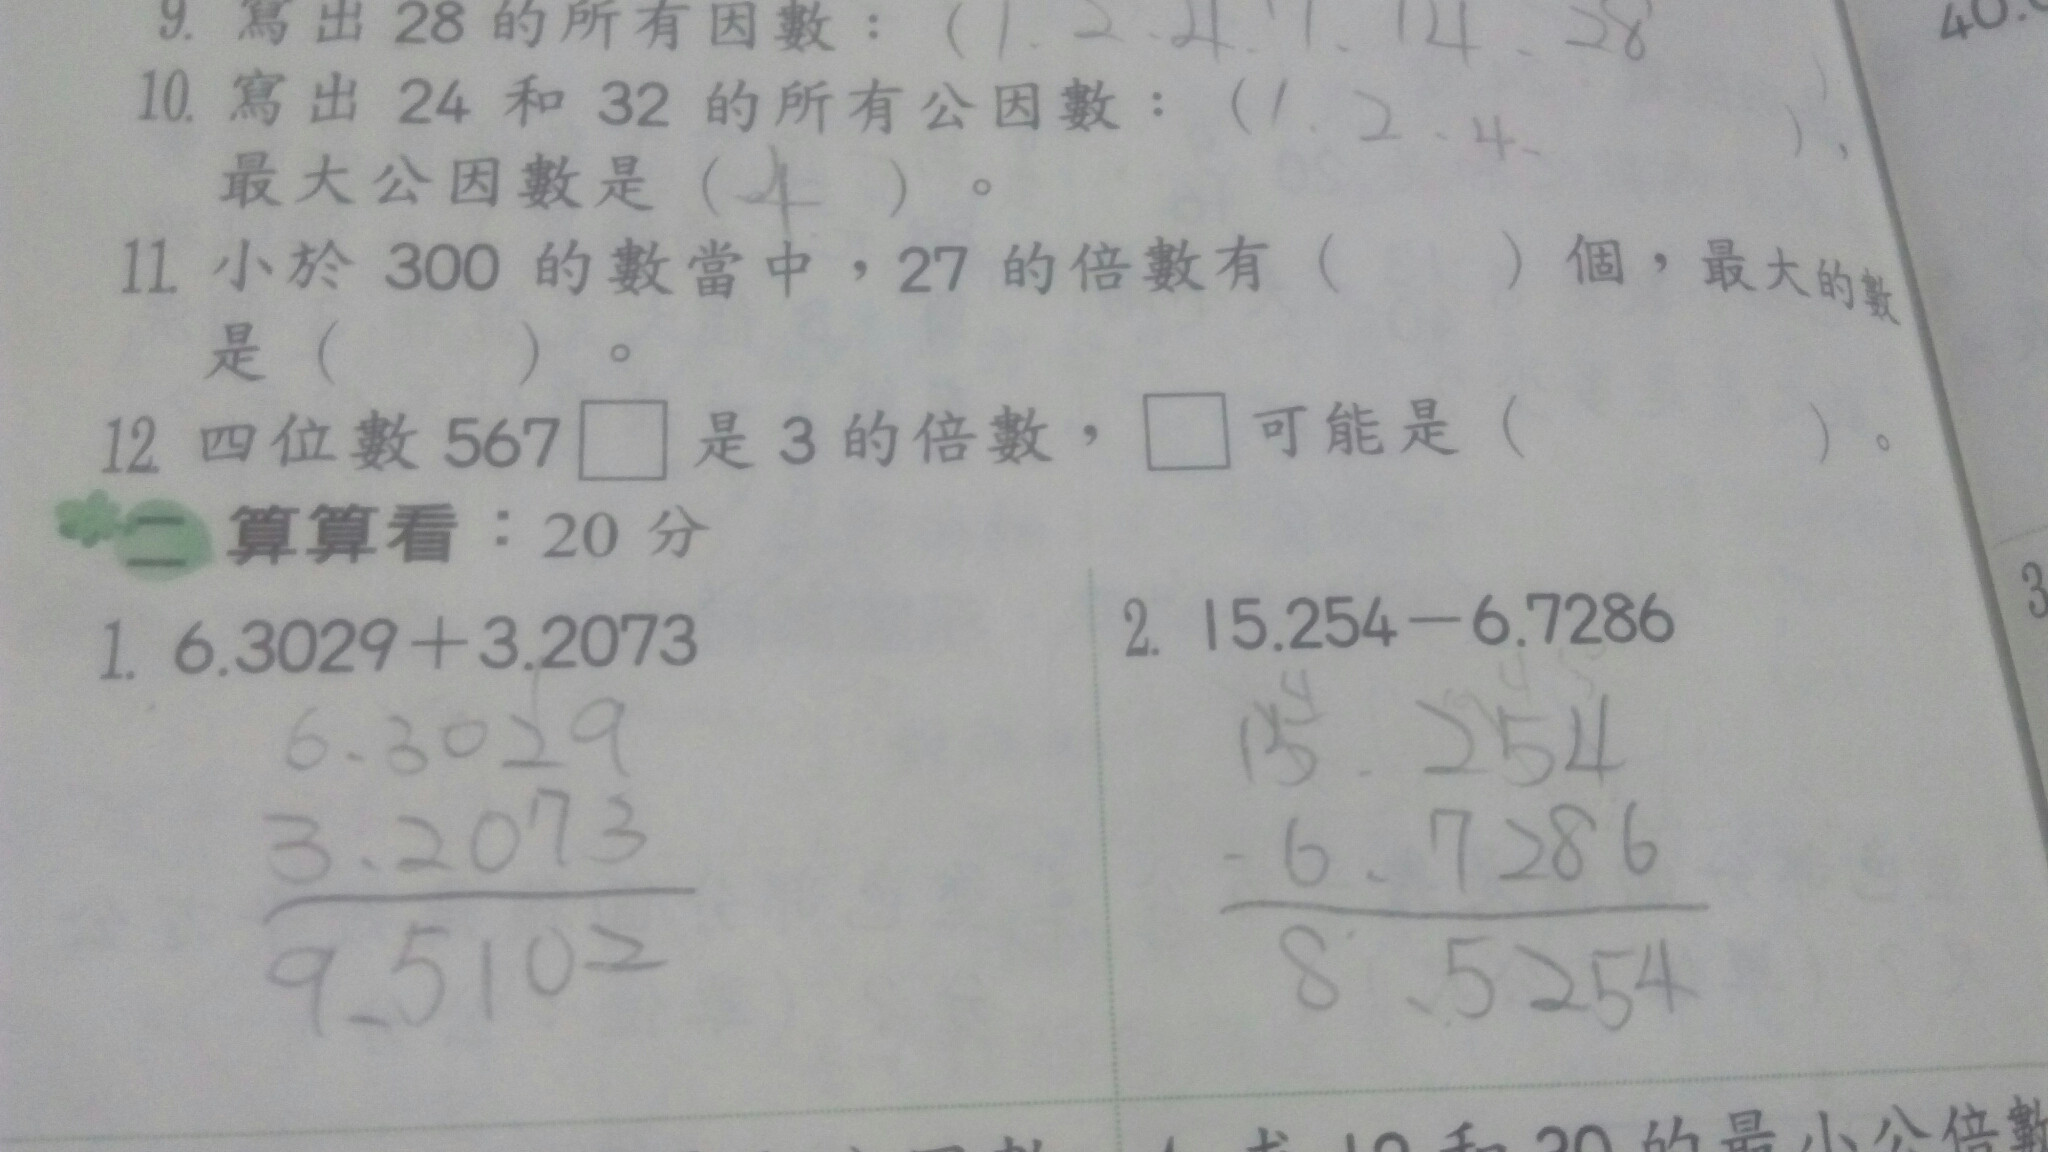 9. 寫出 28 的所有因數：(1.2.4.7.14.28
10. 寫出 24 和 32 的所有公因數：(1.2.4. )，
最大公因數是（4）。
11. 小於 300 的數當中，27 的倍數有（ ）個，最大的數
是（ ）。
12. 四位數 567□是 3 的倍數，□可能是（ ）。
二 算算看：20 分
1. 6.3029＋3.2073
6.3029
3.2073
9.5102
2. 15.254－6.7286
15.254
-6.7286
8.5254
40.
3
的最小公倍數